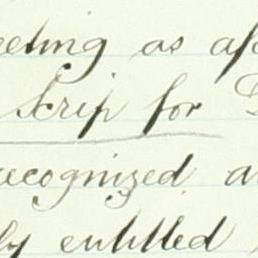 eeting as
Scrip for
recognized a
ly entitled